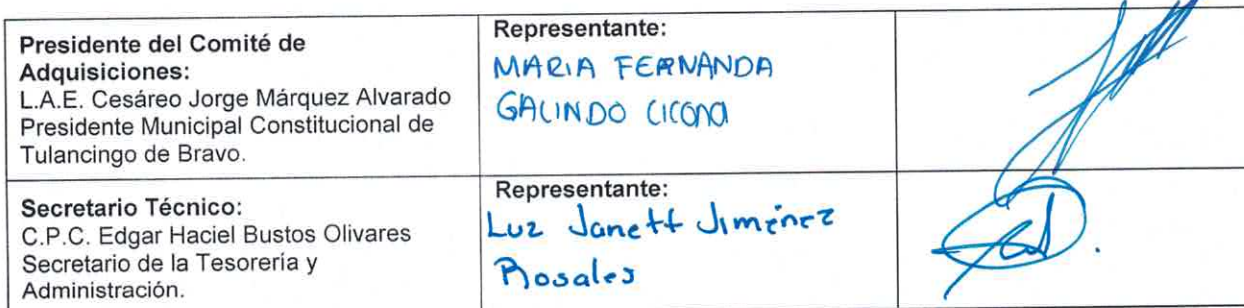 Presidente del Comité de
Adquisiciones:
L.A.E. Cesáreo Jorge Márquez Alvarado
Presidente Municipal Constitucional de
Tulancingo de Bravo.
Representante:
MARIA FERNANDA
GALINDO CICONA
Secretario Técnico:
C.P.C. Edgar Haciel Bustos Olivares
Secretario de la Tesorería y
Administración.
Representante:
Luz Janett Jiménez
Rosales